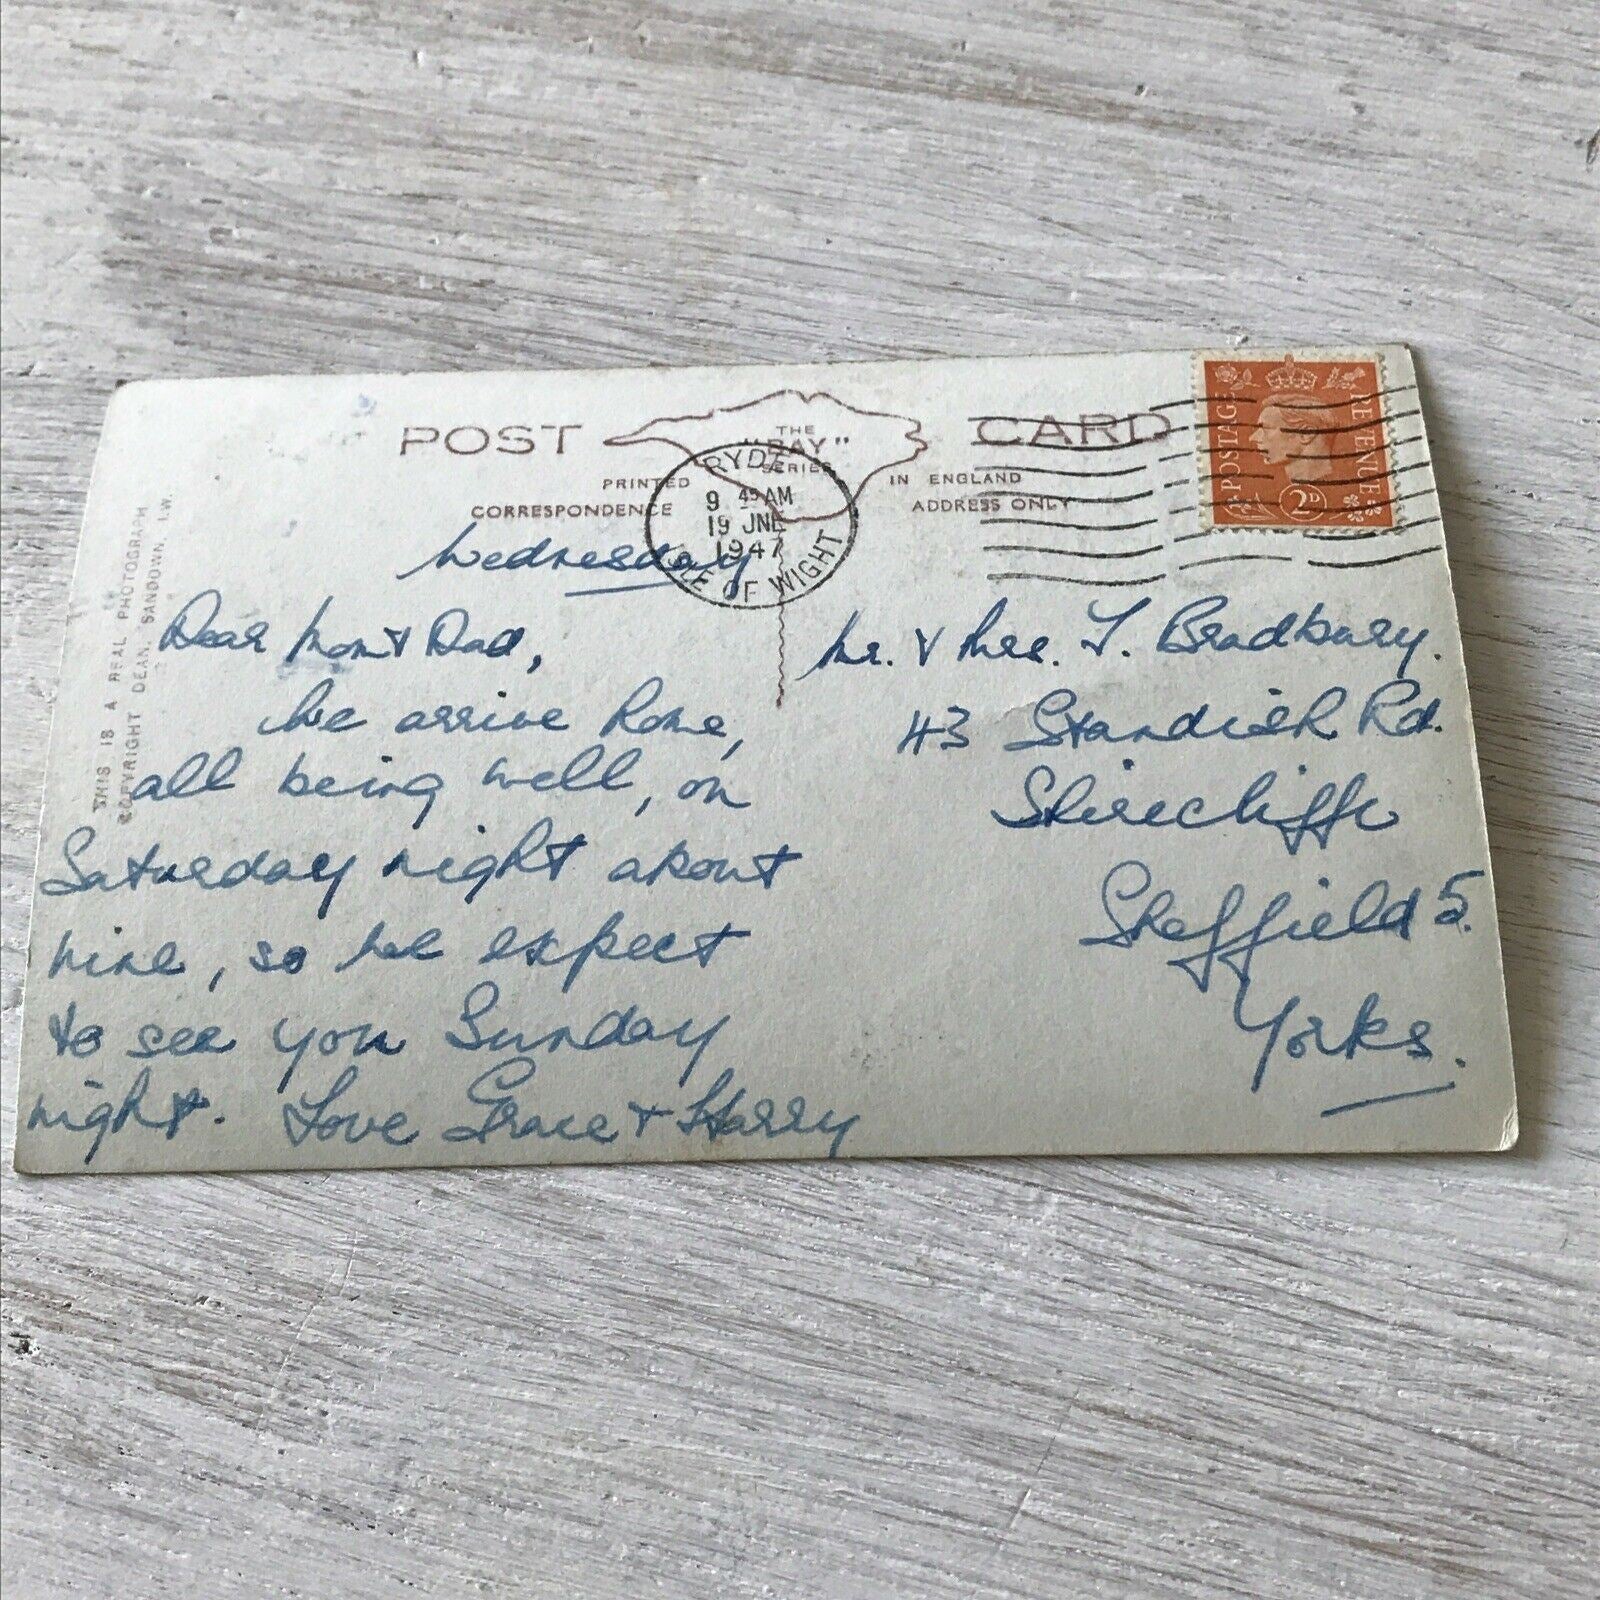 POST CARD
THE
"BAY"
SERIES
PRINTED IN ENGLAND
CORRESPONDENCE ADDRESS ONLY
RYDE
9 45 AM
19 JNE
1947
ISLE OF WIGHT
POSTAGE REVENUE
2D
THIS IS A REAL PHOTOGRAPH
COPYRIGHT DEAN, SANDOWN, I.W.
Wednesday
Dear Mom & Dad,
We arrive home,
all being well, on
Saturday night about
nine, so we expect
to see you Sunday
night. Love Grace & Harry
Mr. & Mrs. T. Bradbury.
43 Standish Rd.
Shirecliffe
Sheffield 5.
Yorks.